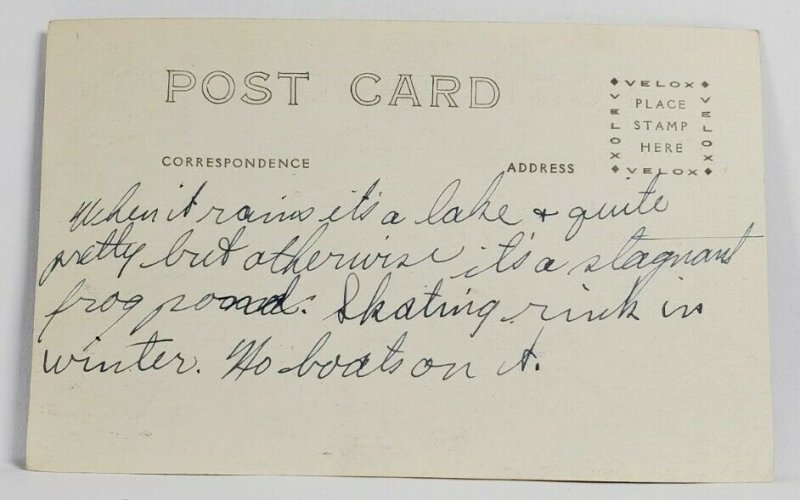 POST CARD
VELOX
VELOX PLACE VELOX
STAMP
HERE
VELOX
CORRESPONDENCE ADDRESS
When it rains it's a lake + quite
pretty but otherwise it's a stagnant
frog pond. Skating rink in
winter. No boats on it.